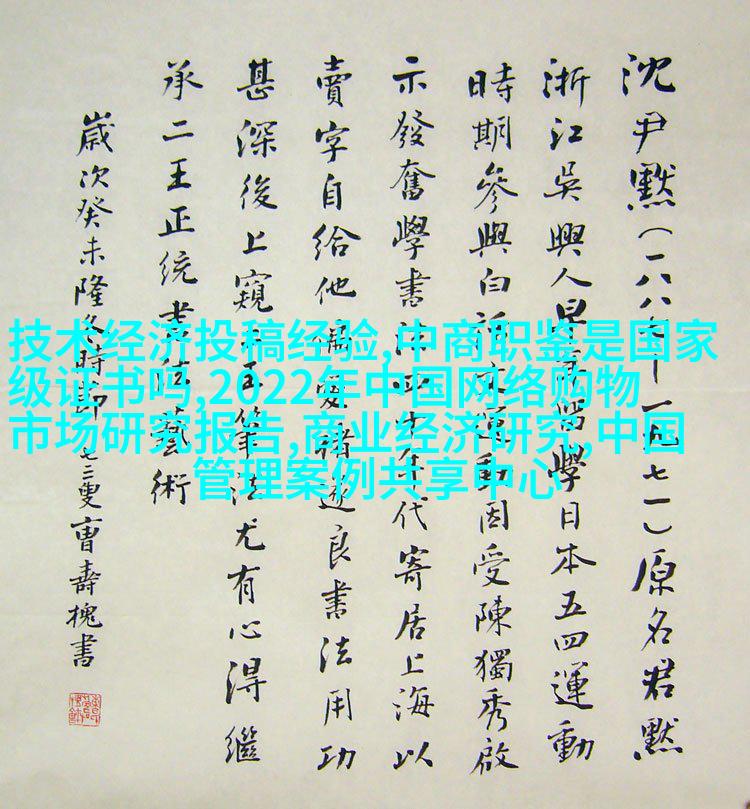 沈尹默(一八八—一九七一)原名君默
浙江吳興人早年留學日本五四運動
時期參與白話文運動因受陳獨秀啟
示發奮學書法四十年代寄居上海以
賣字自給他偏愛褚遂良書法用功
甚深後上窺二王筆法尤有心得繼
承二王正統書法藝術
歲次癸未隆冬時節七三叟曹壽槐書
技术经济投稿经验,中商职鉴是国家
级证书吗,2022年中国网络购物
市场研究报告,商业经济研究,中国
管理案例共享中心